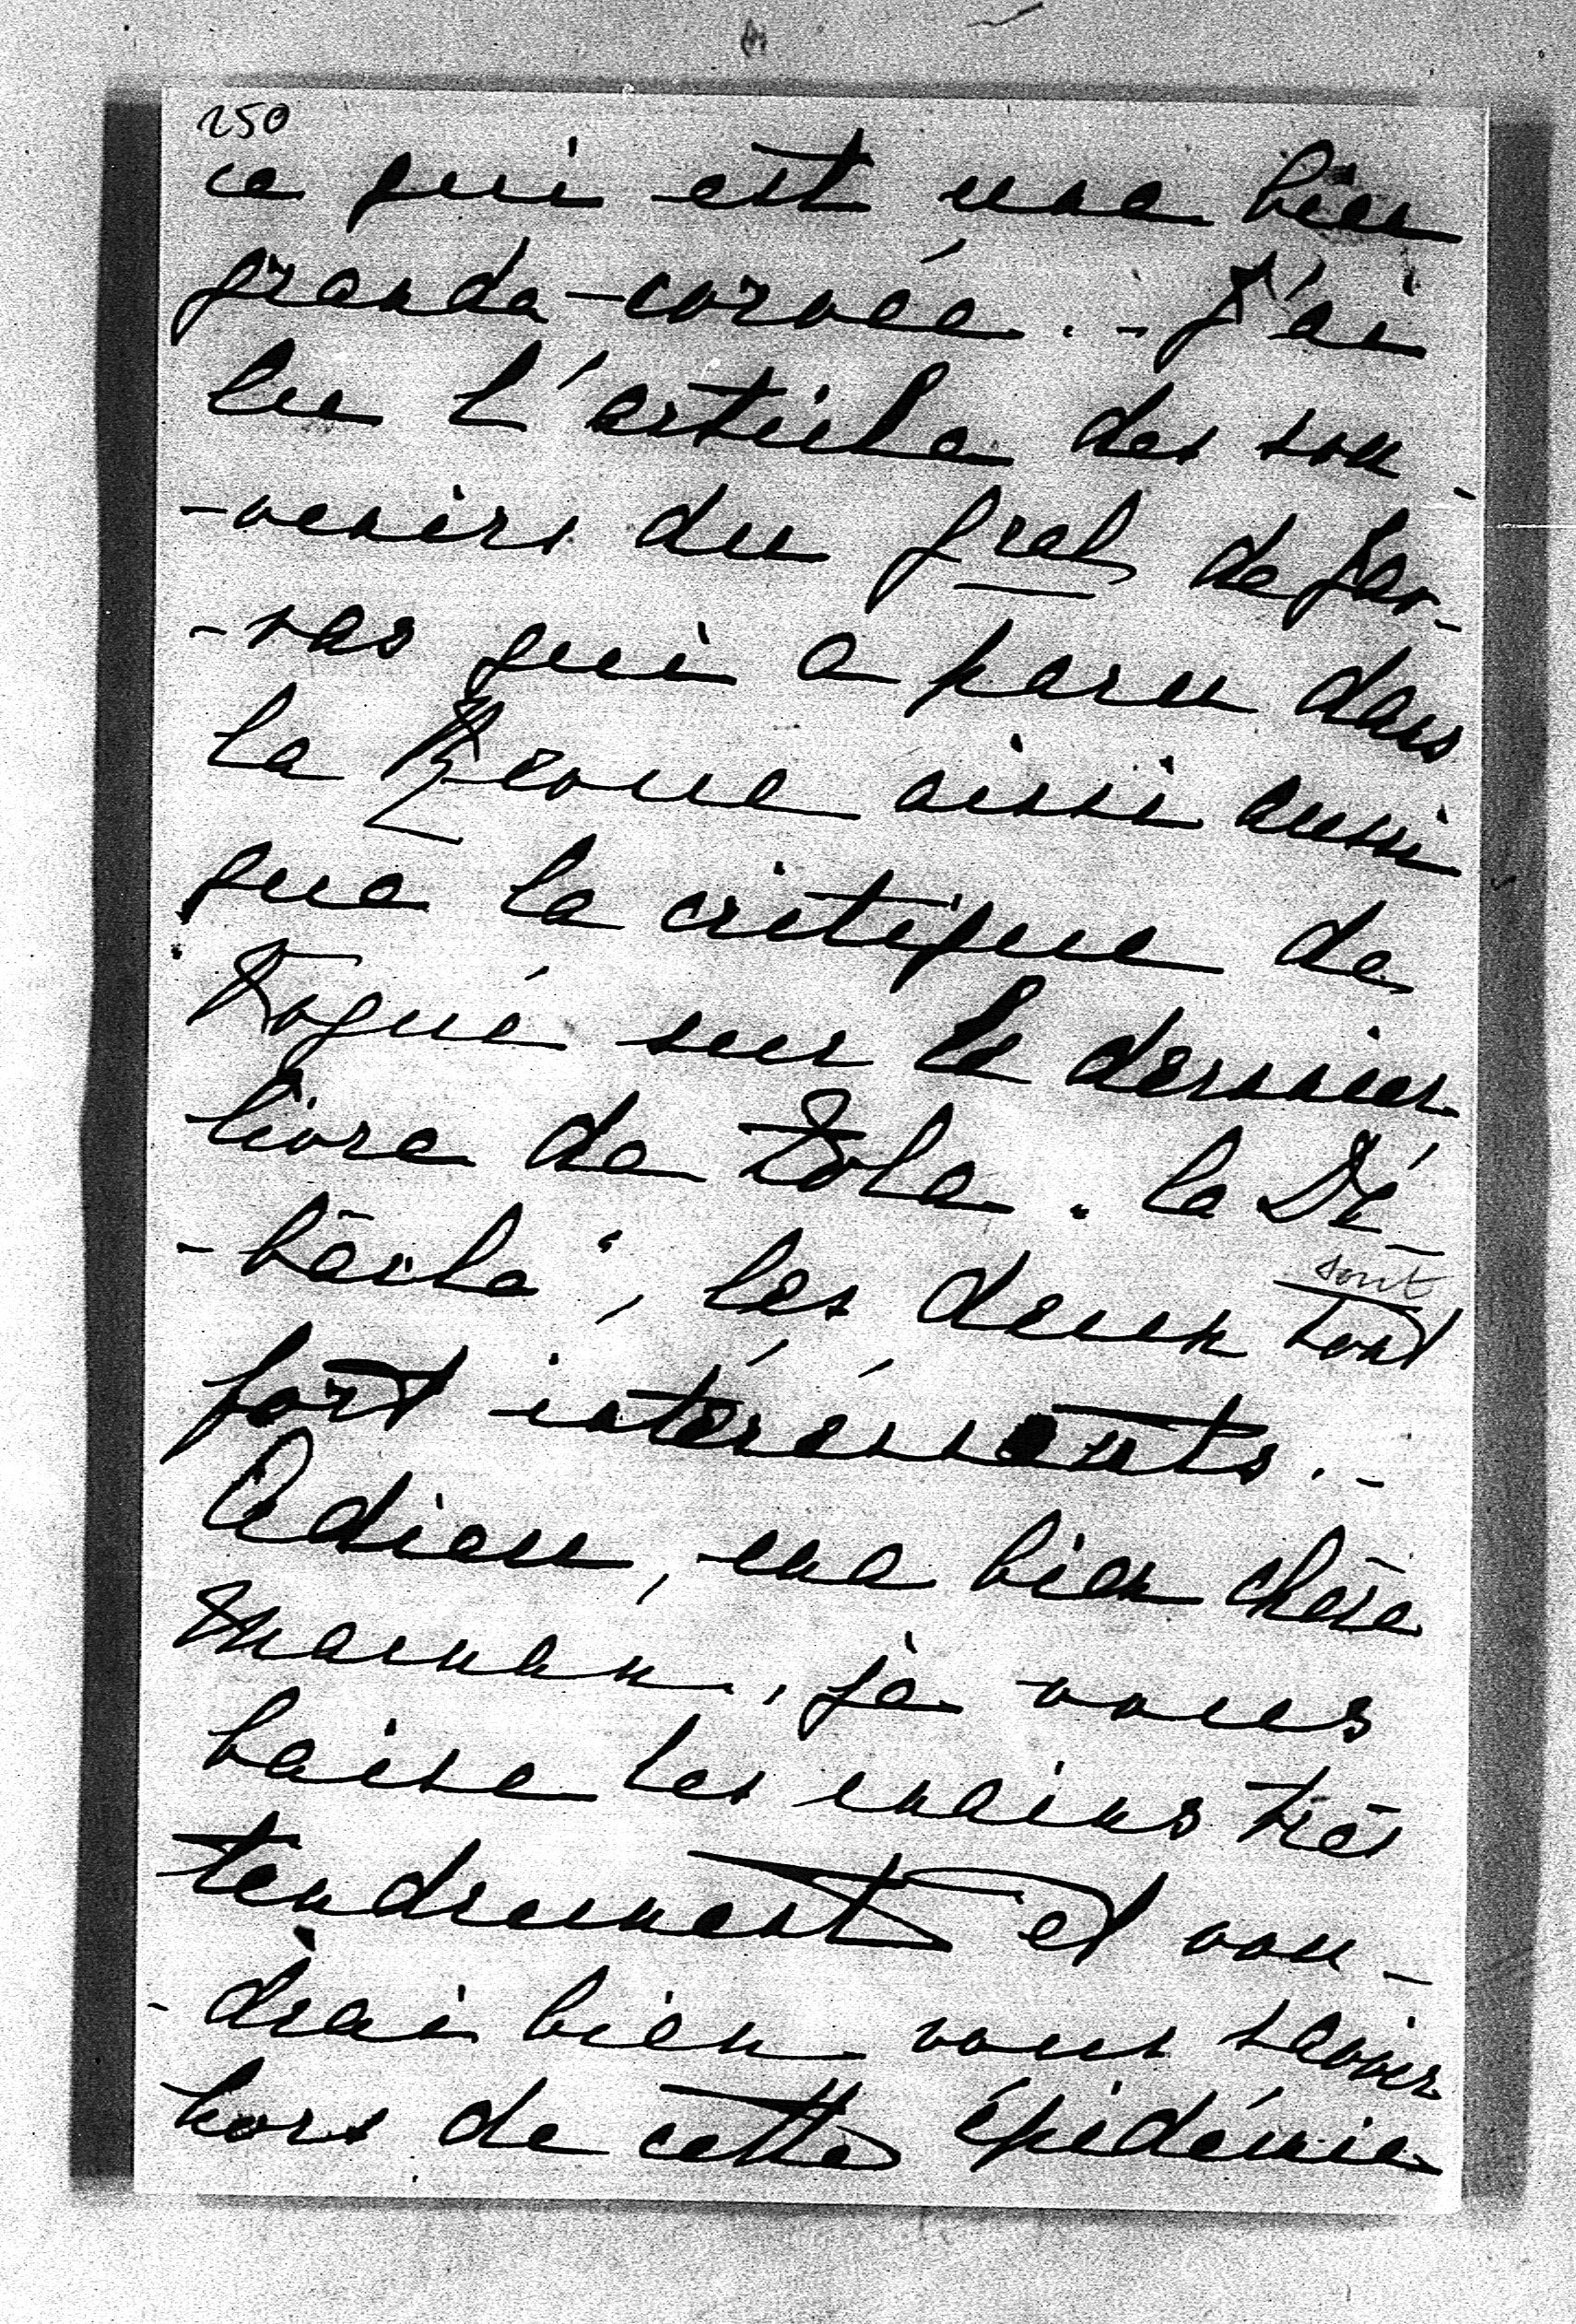 250
ce qui est une bien
grande corvée. - J'ai
lu l'article des sou-
-venirs du gral de
qui a paru dans
la Revue ainsi aussi
que la critique de
Vogué sur le dernier
livre de Zola. la Dé-
-bâcle", les deux sont
sont
fort intéréssants. -
Adieu, ma bien chère
Maman, je vous
baise les mains très
tendrement et vou-
-drai bien vous savoir
hors de cette épidémie